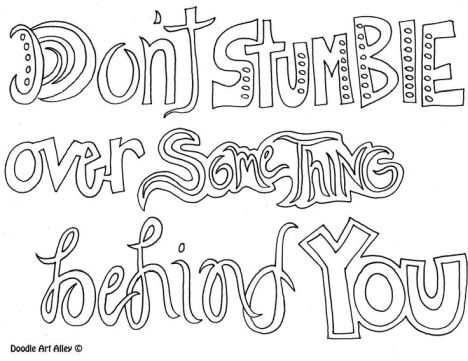 Don't STUMBlE
over SomeTHING
behind You
Doodle Art Alley ©